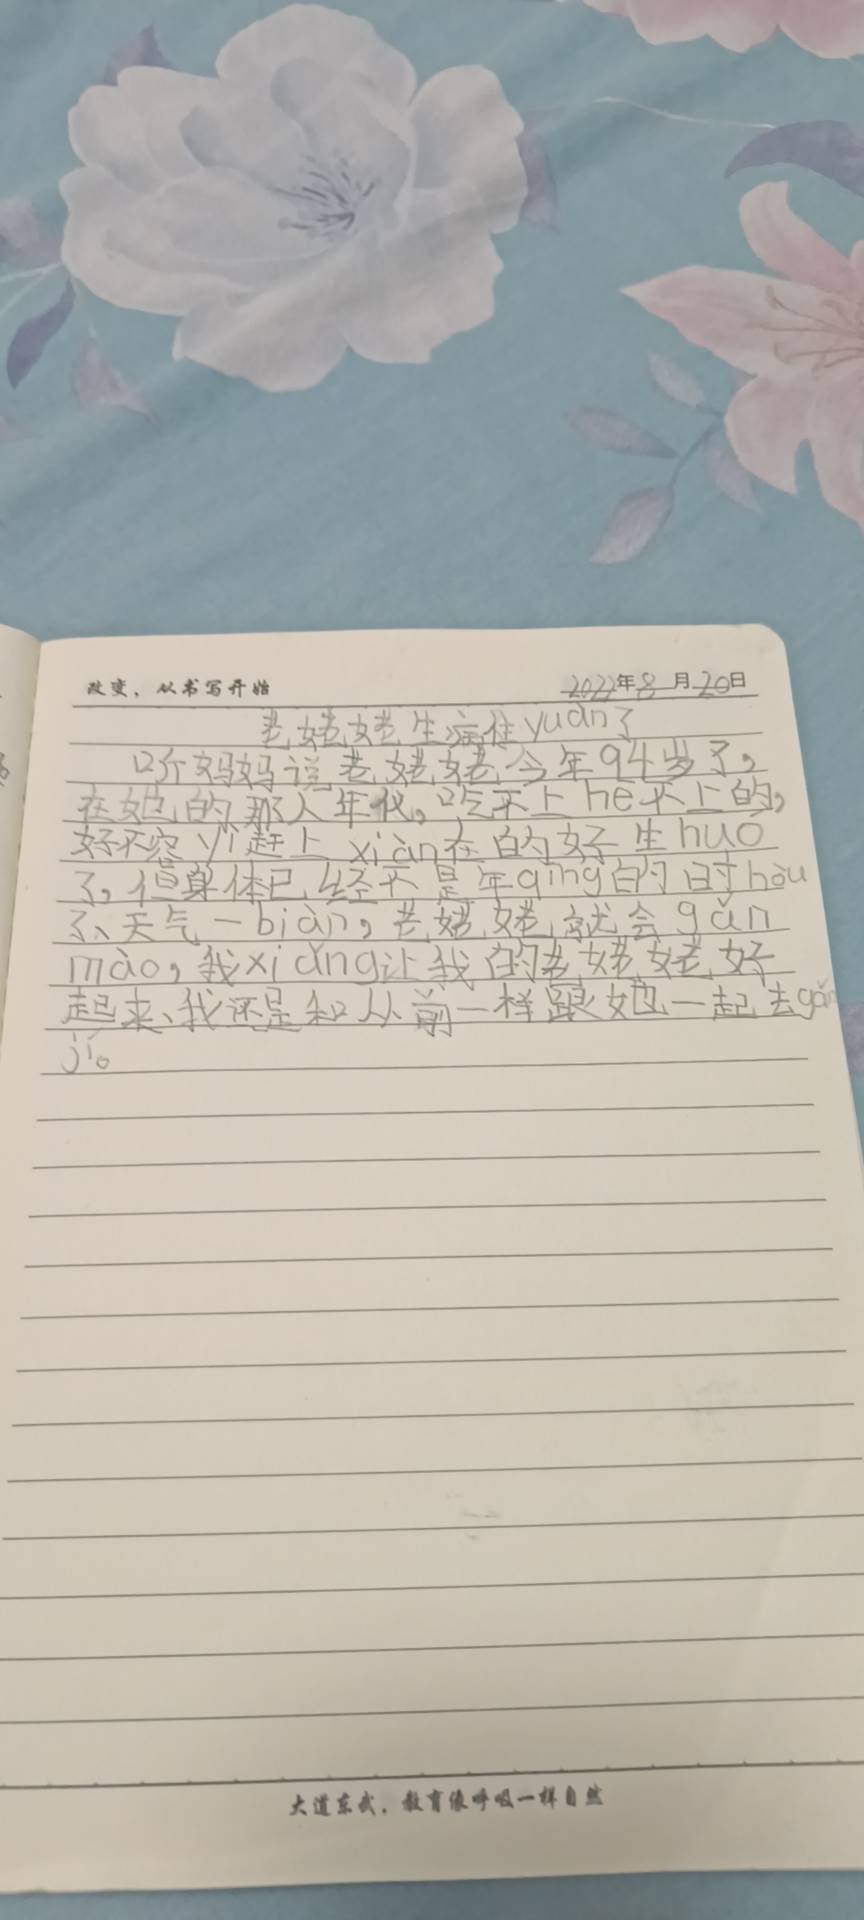 改变，从书写开始
2022年8月20日
老姥姥生病住yuàn了
听妈妈说老姥姥今年94岁了，
在她的那个年代，吃不上he不上的，
好不容yì赶上xiàn在的好生huó
了，但身体已经不是年qīng的时hòu
了、天气一biàn，老姥姥就会gǎn
mào，我xiǎng让我的老姥姥好
起来、我还是和从前一样跟她一起去gǎn
jí。
大道东武，教育像呼吸一样自然